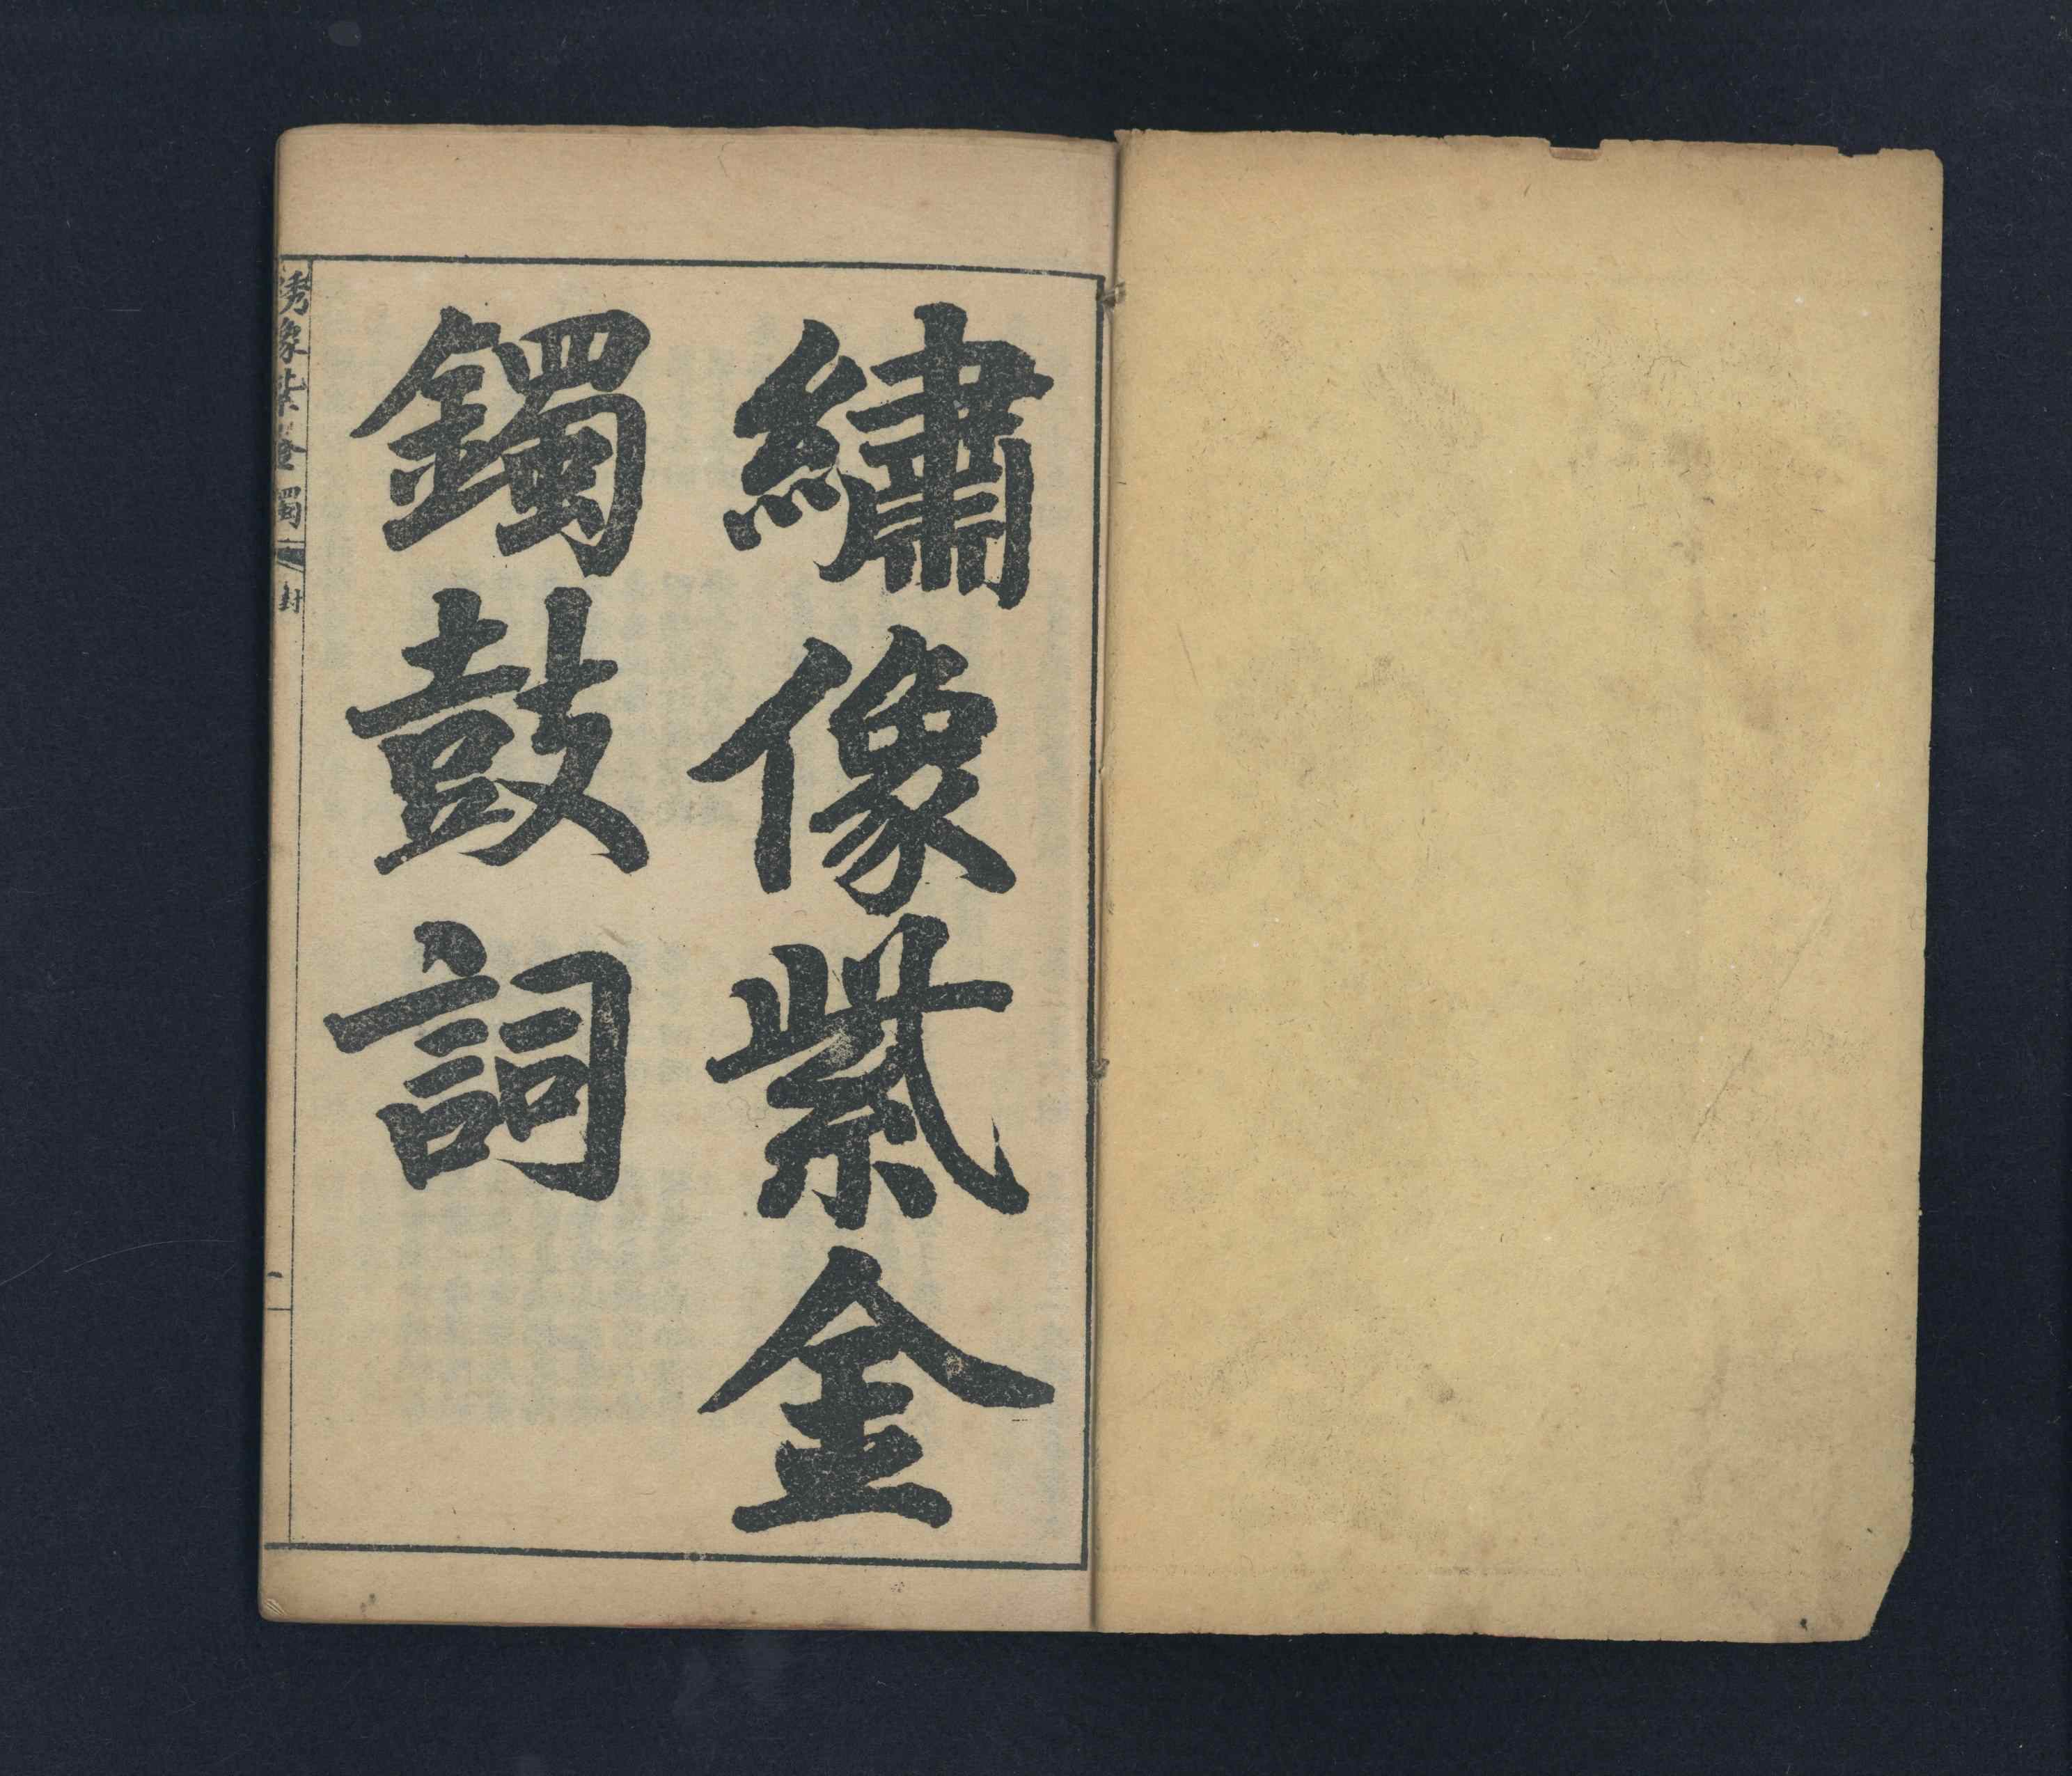 繡像紫金
鐲鼓詞
綉像紫金鐲
封
一